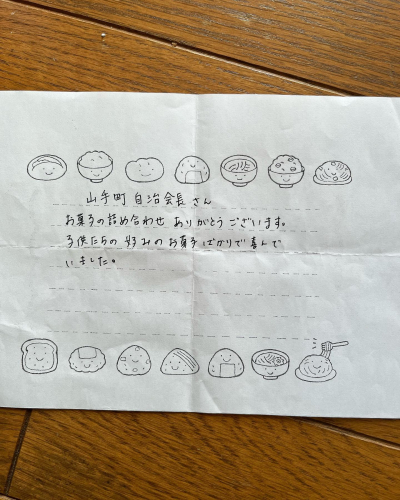 山手町 自治会長 さん
お菓子の詰め合わせ ありがとうございます。
子供たちの 好みの お菓子 ばかりで 喜んで
いました。